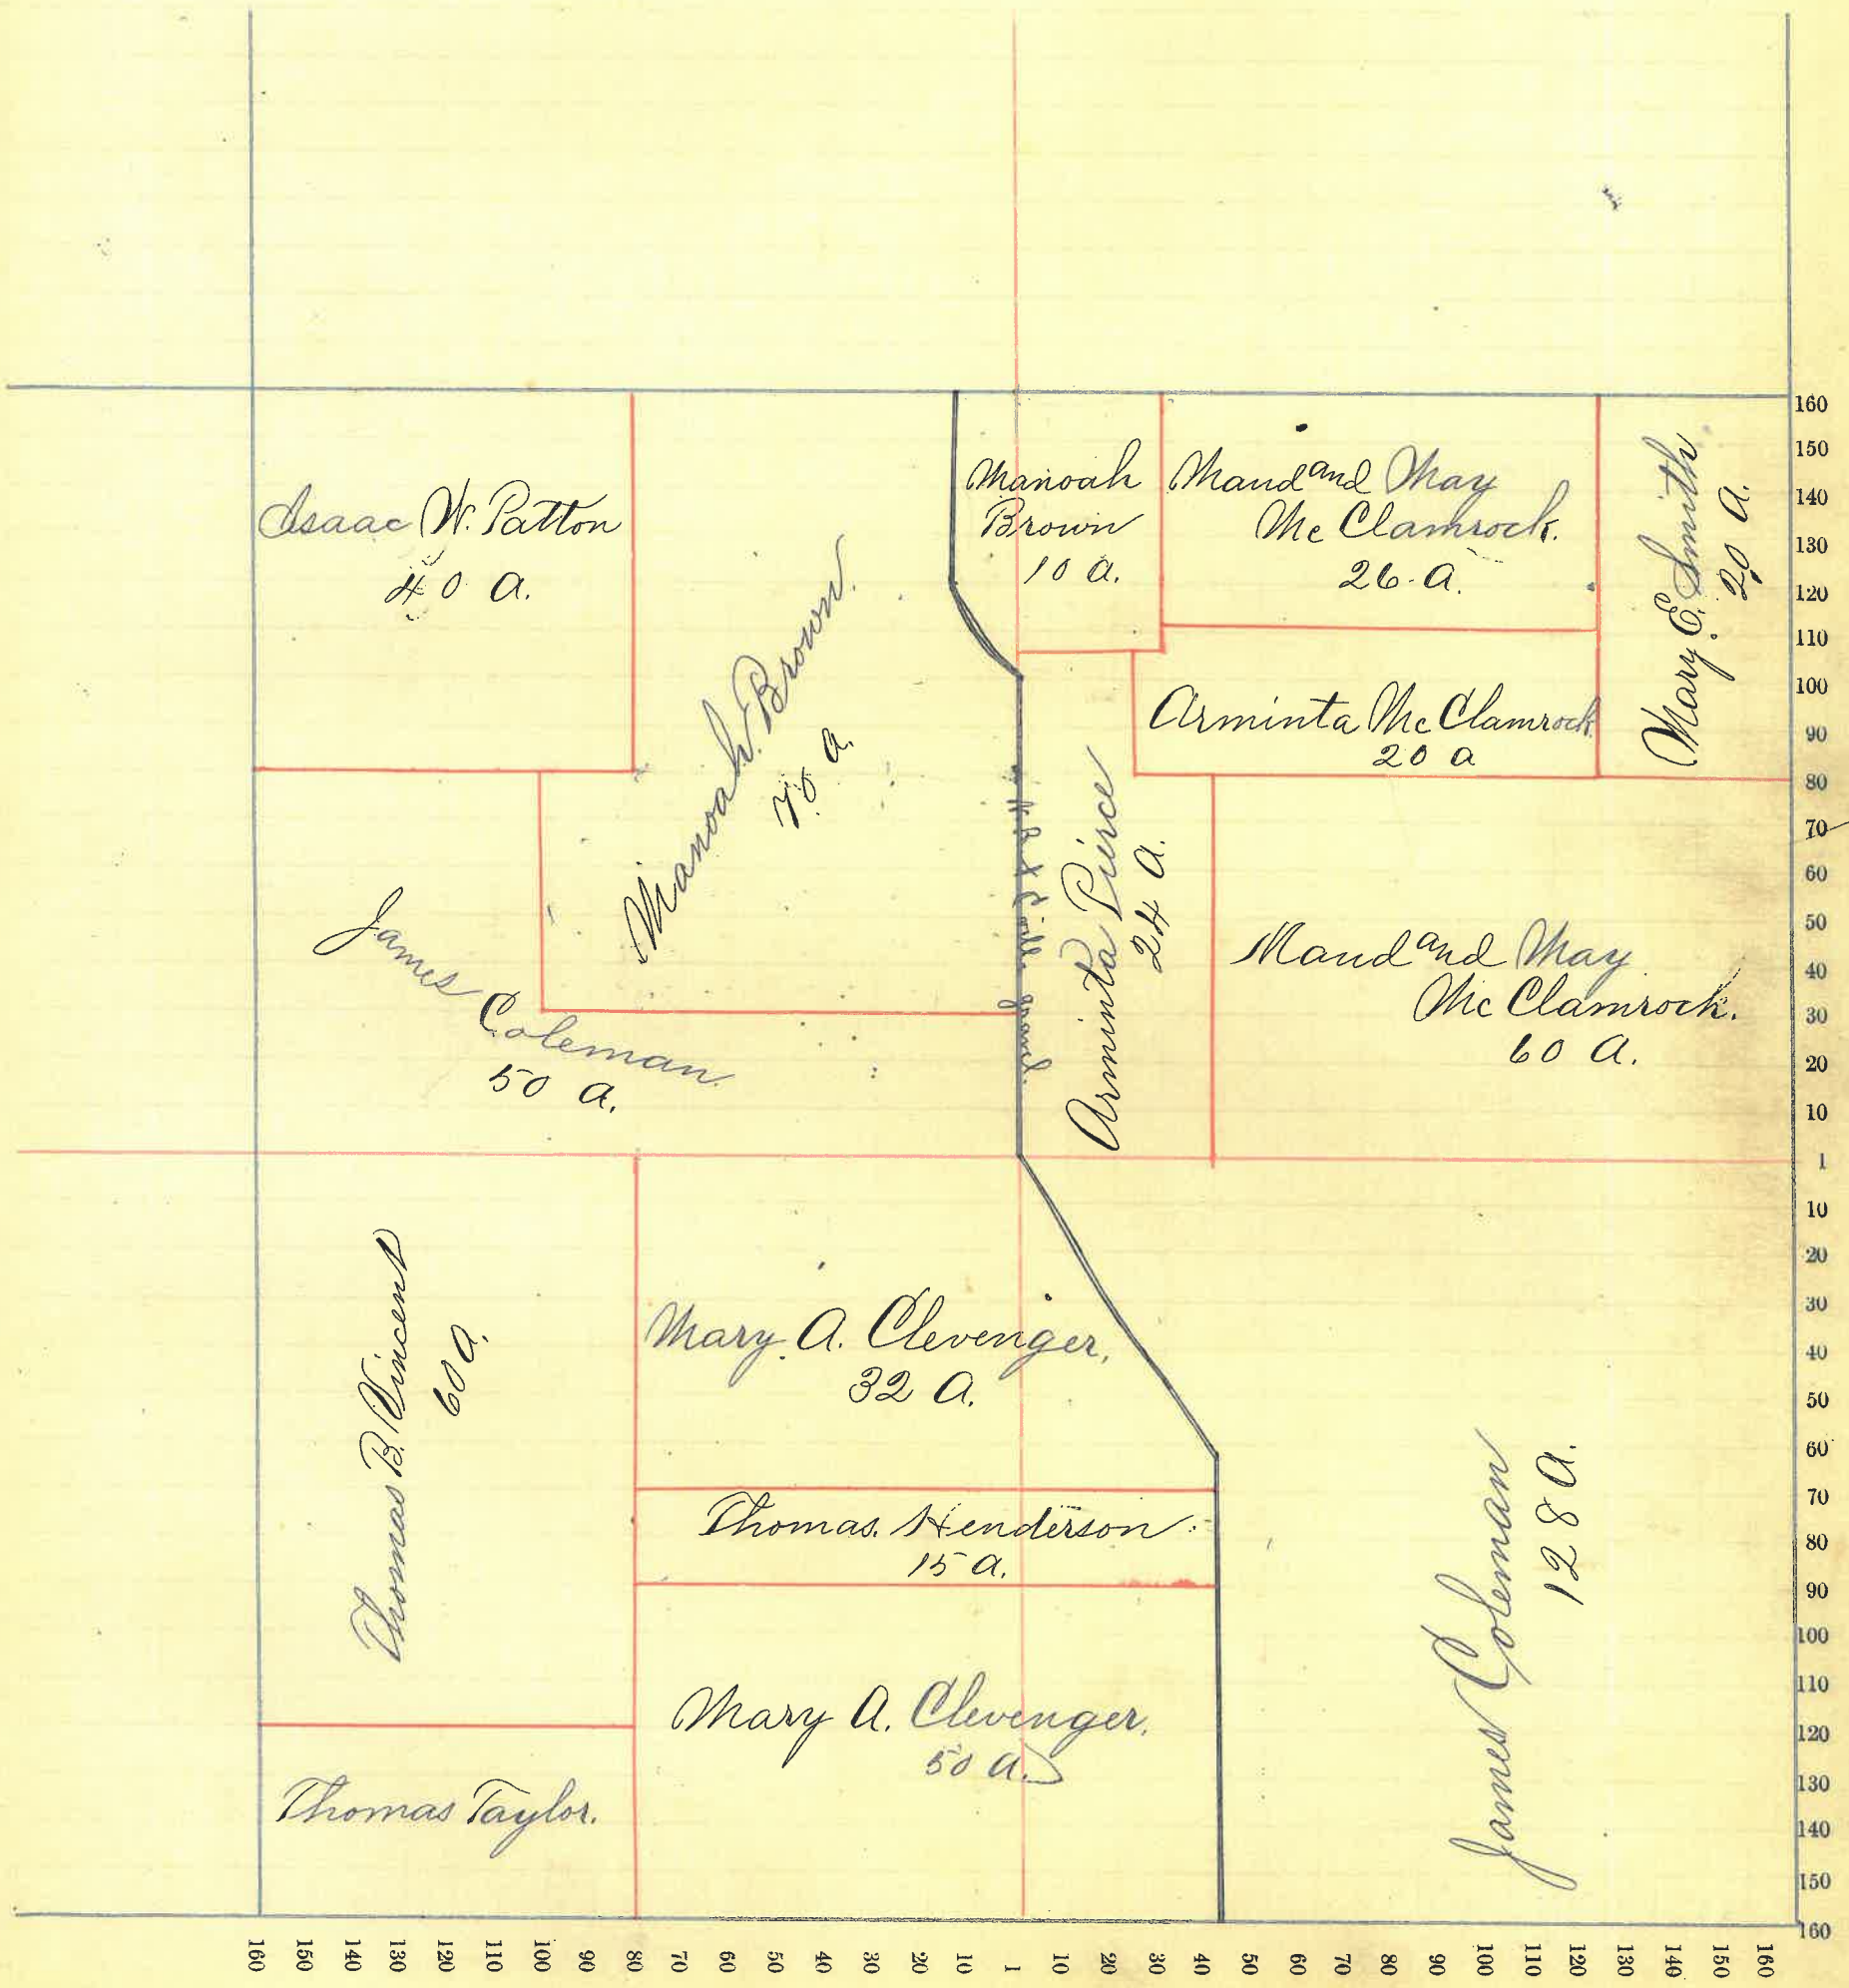 Isaac W. Patton
40 A.
Manoah Brown.
A.
Manoah
Brown
10 A.
Maud and May
Mc Clamrock.
26 A.
Mary E. Smith
20 A.
Arminta Mc Clamrock
20 A
James
Coleman.
50 A.
gravel.
Arminta Pierce
24 A.
Maud and May
Mc Clamrock.
60 A.
Thomas B. Vincent
60 A.
Mary A. Clevenger,
32 A.
Thomas Henderson
15 A.
Mary A. Clevenger,
50 A.
Thomas Taylor.
James Coleman
128 A.
160
150
140
130
120
110
100
90
80
70
60
50
40
30
20
10
1
10
20
30
40
50
60
70
80
90
100
110
120
130
140
150
160
160 150 140 130 120 110 100 90 80 70 60 50 40 30 20 10 1 10 20 30 40 50 60 70 80 90 100 110 120 130 140 150 160